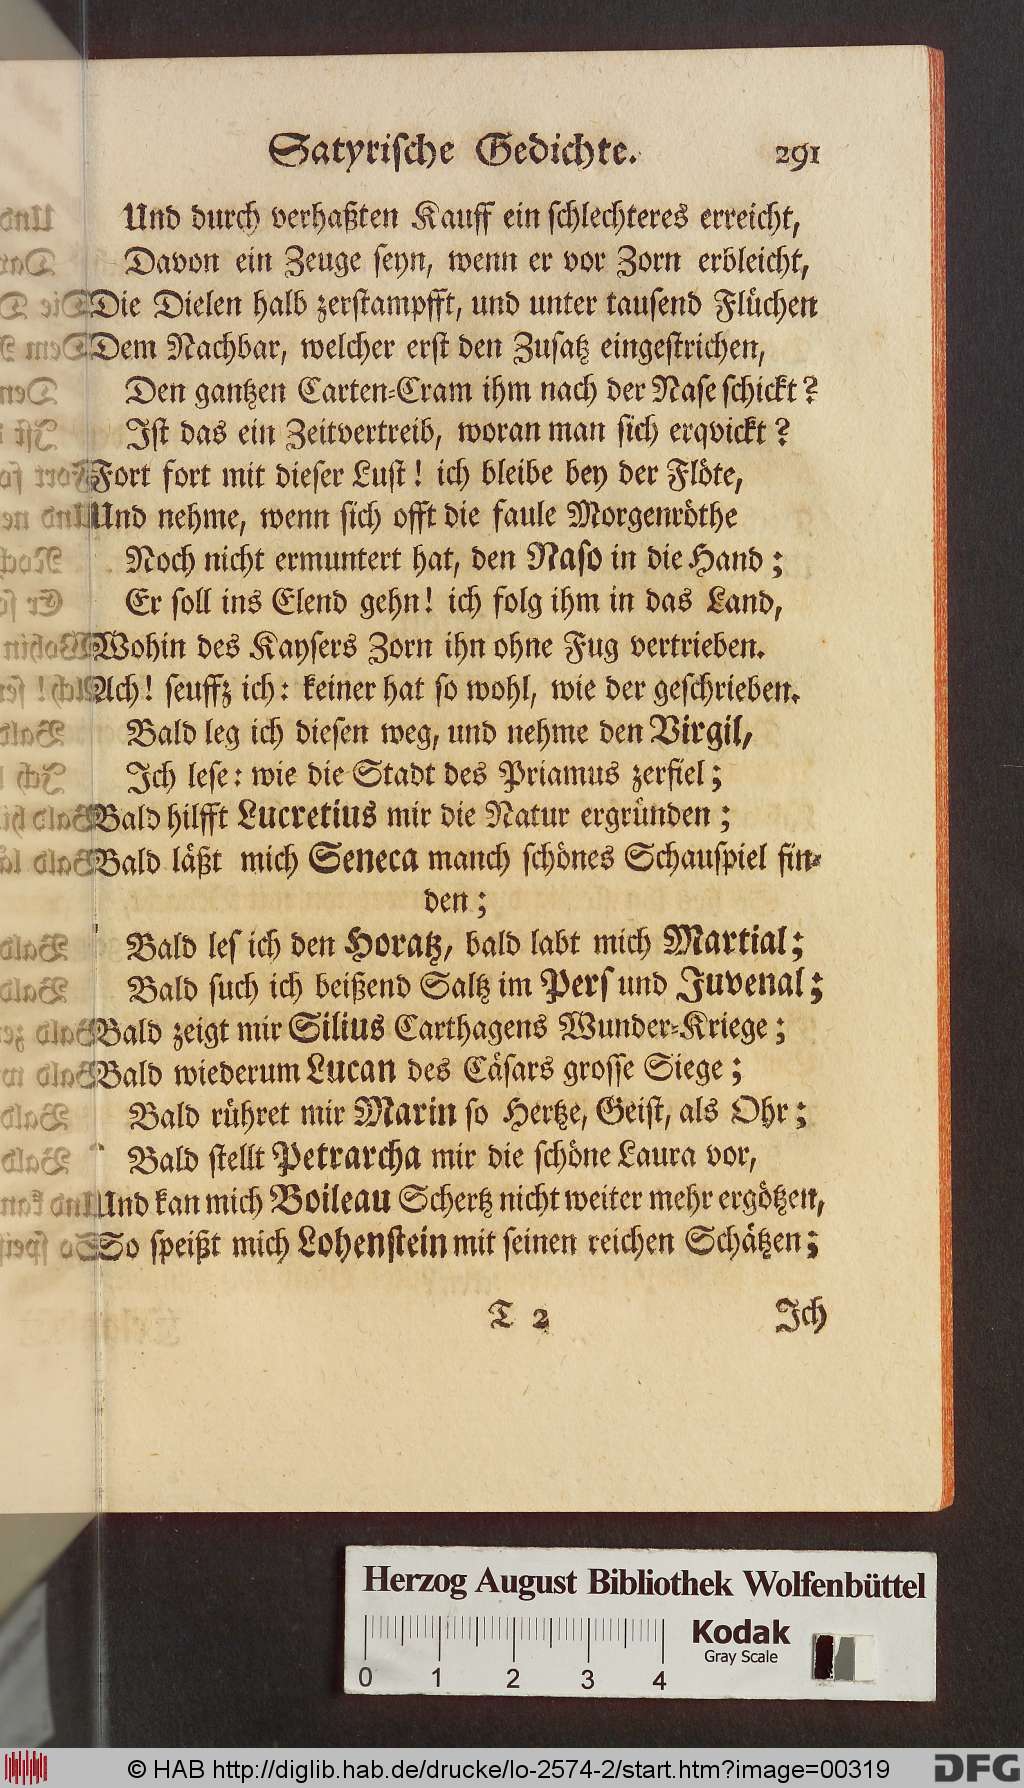 Satyrische Gedichte. 291
Und durch verhaßten Kauff ein schlechteres erreicht,
Davon ein Zeuge seyn, wenn er vor Zorn erbleicht,
Die Dielen halb zerstampfft, und unter tausend Flüchen
Dem Nachbar, welcher erst den Zusatz eingestrichen,
Den gantzen Carten-Cram ihm nach der Nase schickt?
Ist das ein Zeitvertreib, woran man sich erqvickt?
Fort fort mit dieser Lust! ich bleibe bey der Flöte,
Und nehme, wenn sich offt die faule Morgenröthe
Noch nicht ermuntert hat, den Naso in die Hand;
Er soll ins Elend gehn! ich folg ihm in das Land,
Wohin des Kaysers Zorn ihn ohne Fug vertrieben.
Ach! seuffz ich: keiner hat so wohl, wie der geschrieben.
Bald leg ich diesen weg, und nehme den Virgil,
Ich lese: wie die Stadt des Priamus zerfiel;
Bald hilfft Lucretius mir die Natur ergründen;
Bald läßt mich Seneca manch schönes Schauspiel fin-
den;
Bald les ich den Horatz, bald labt mich Martial;
Bald such ich beißend Saltz im Pers und Juvenal;
Bald zeigt mir Silius Carthagens Wunder-Kriege;
Bald wiederum Lucan des Cäsars grosse Siege;
Bald rühret mir Marin so Hertze, Geist, als Ohr;
Bald stellt Petrarcha mir die schöne Laura vor,
Und kan mich Boileau Schertz nicht weiter mehr ergötzen,
So speißt mich Lohenstein mit seinen reichen Schätzen;
T 2 Ich
Herzog August Bibliothek Wolfenbüttel
Kodak
Gray Scale
0 1 2 3 4
© HAB http://diglib.hab.de/drucke/lo-2574-2/start.htm?image=00319
DFG